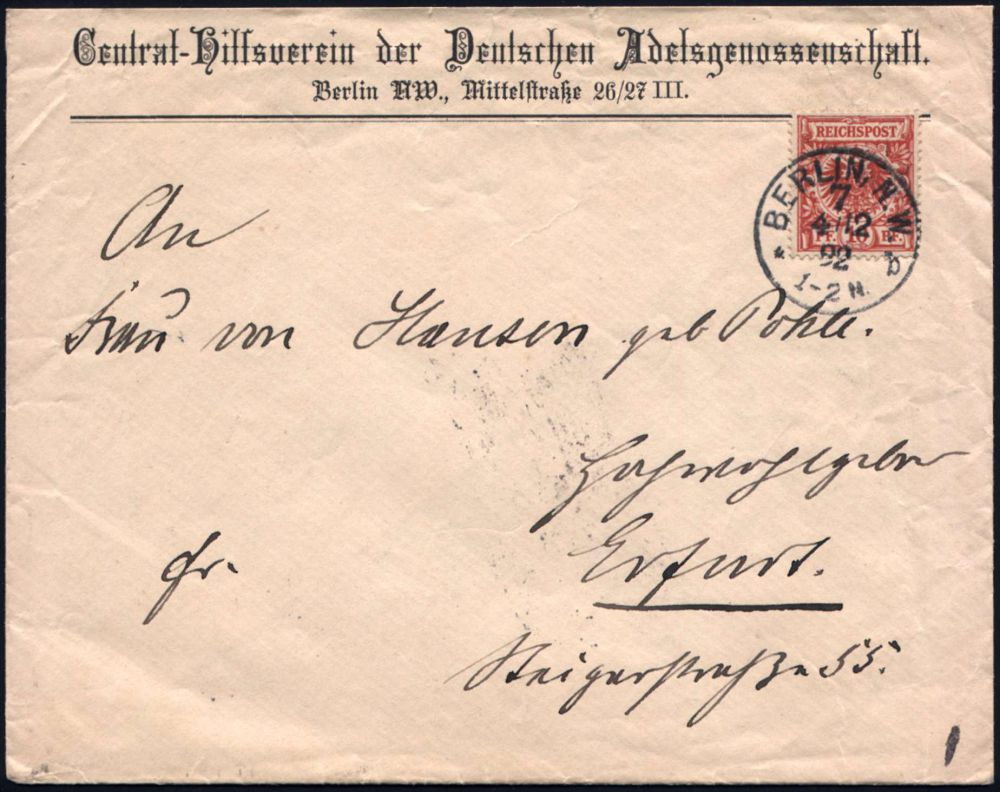 Central-Hilfsverein der Deutschen Adelsgenossenschaft.
Berlin NW., Mittelstraße 26/27 III.
REICHSPOST
PF. 10 PF.
BERLIN, N.W.
7
4/12
92
1-2 N.
* b
An
Frau von Hansen geb Pohle.
Hochwohlgeboren
fr.
Erfurt.
Steigerstraße 55.